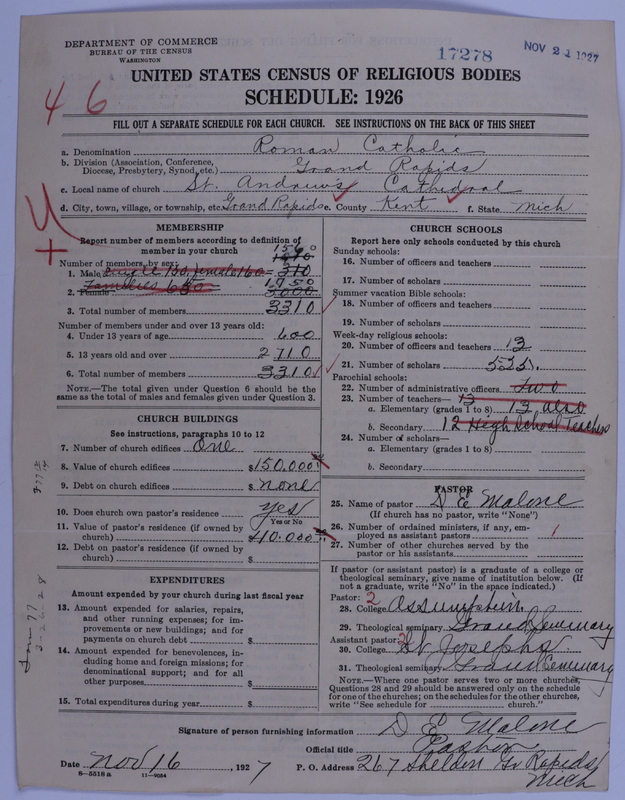 DEPARTMENT OF COMMERCE
BUREAU OF THE CENSUS
WASHINGTON
17278
NOV 21 1927
UNITED STATES CENSUS OF RELIGIOUS BODIES
SCHEDULE: 1926
46
FILL OUT A SEPARATE SCHEDULE FOR EACH CHURCH. SEE INSTRUCTIONS ON THE BACK OF THIS SHEET
a. Denomination Roman Catholic
b. Division (Association, Conference, Diocese, Presbytery, Synod, etc.) Grand Rapids
c. Local name of church St. Andrew's Cathedral
d. City, town, village, or township, etc. Grand Rapids e. County Kent f. State Mich
MEMBERSHIP
Report number of members according to definition of
member in your church
Number of members, by sex:
1560
1. Male 310
1750
2. Female 3000
3. Total number of members 3310
Number of members under and over 13 years old:
4. Under 13 years of age 600
5. 13 years old and over 2710
6. Total number of members 3310
NOTE.—The total given under Question 6 should be the
same as the total of males and females given under Question 3.
CHURCH BUILDINGS
See instructions, paragraphs 10 to 12
7. Number of church edifices One
8. Value of church edifices $150.000
9. Debt on church edifices $ none
10. Does church own pastor's residence? yes
Yes or No
11. Value of pastor's residence (if owned by
church) $40.000
12. Debt on pastor's residence (if owned by
church) $
EXPENDITURES
Amount expended by your church during last fiscal year
13. Amount expended for salaries, repairs,
and other running expenses; for im-
provements or new buildings; and for
payments on church debt $
14. Amount expended for benevolences, in-
cluding home and foreign missions; for
denominational support; and for all
other purposes $
15. Total expenditures during year $
CHURCH SCHOOLS
Report here only schools conducted by this church
Sunday schools:
16. Number of officers and teachers
17. Number of scholars
Summer vacation Bible schools:
18. Number of officers and teachers
19. Number of scholars
Week-day religious schools:
20. Number of officers and teachers 13
21. Number of scholars 535.
Parochial schools:
22. Number of administrative officers two
23. Number of teachers— 13
a. Elementary (grades 1 to 8) 13 also
b. Secondary 12 High School Teachers
24. Number of scholars—
a. Elementary (grades 1 to 8)
b. Secondary
PASTOR
25. Name of pastor D E Malone
(If church has no pastor, write "None")
26. Number of ordained ministers, if any, em-
ployed as assistant pastors 1
27. Number of other churches served by the
pastor or his assistants
If pastor (or assistant pastor) is a graduate of a college or
theological seminary, give name of institution below. (If
not a graduate, write "No" in the space indicated.)
Pastor: 2
28. College Assumption
29. Theological seminary Grand Seminary
Assistant pastor: 2
30. College St Josephs
31. Theological seminary Grand Seminary
NOTE.—Where one pastor serves two or more churches,
Questions 28 and 29 should be answered only on the schedule
for one of the churches; on the schedules for the other churches,
write "See schedule for church."
Signature of person furnishing information D E Malone
Official title Pastor
Date Nov 16, 1927 P. O. Address 267 Sheldon Gr Rapids
Mich
8—5518 a 11—9054